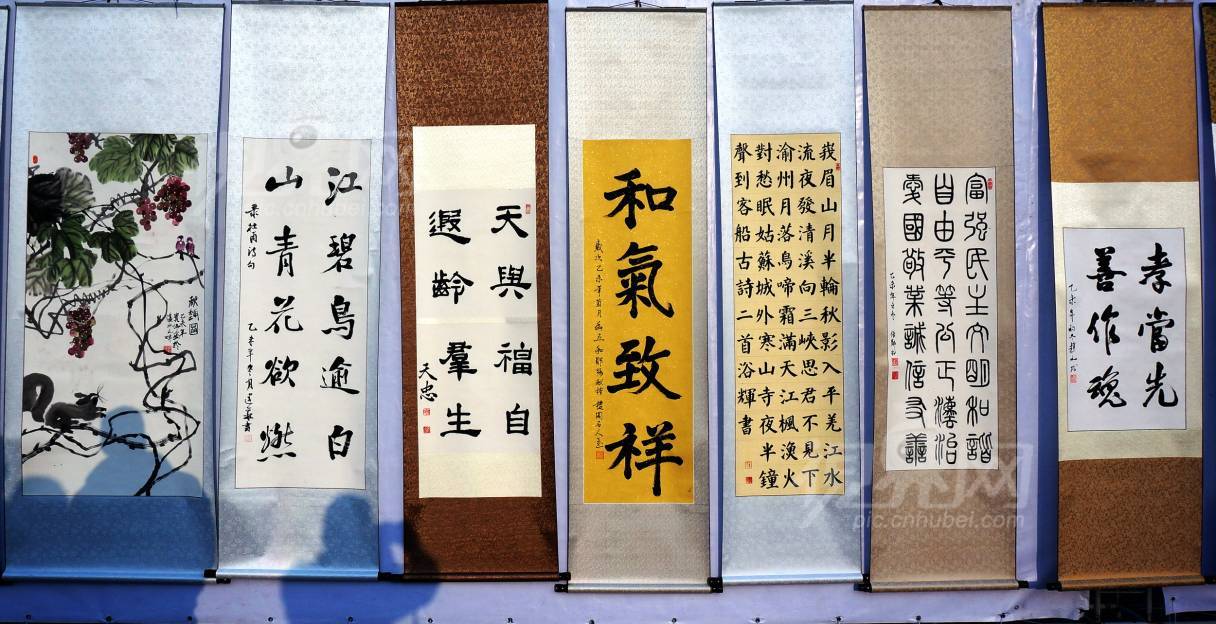 秋韻圖
江碧鳥逾白
山青花欲燃
录杜甫诗句
天與福自
遐齡羣生
天忠
和氣致祥
峩眉山月半輪秋影入平羌江水
流夜發清溪向三峽思君不見下
渝州月落烏啼霜滿天江楓漁火
對愁眠姑蘇城外寒山寺夜半鐘
聲到客船古詩二首浴輝書
富强民主文明和諧
自由平等公正灋治
愛國敬業誠信友譱
孝當先
善作魂
pic.cnhubei.com